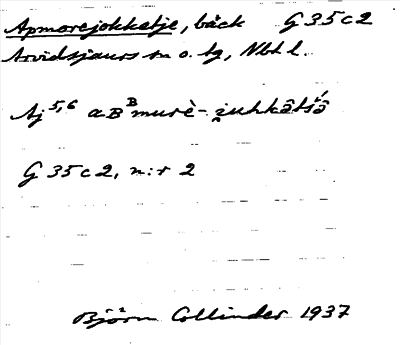 Apmorejokkatje, bäck G 35 c 2
Arvidsjaurs sn o. tg, Nbt l.
Aj 5,6 aBᴮmurè-i̯uhkâtšâ
G 35 c 2, n:r 2
Björn Collinder 1937